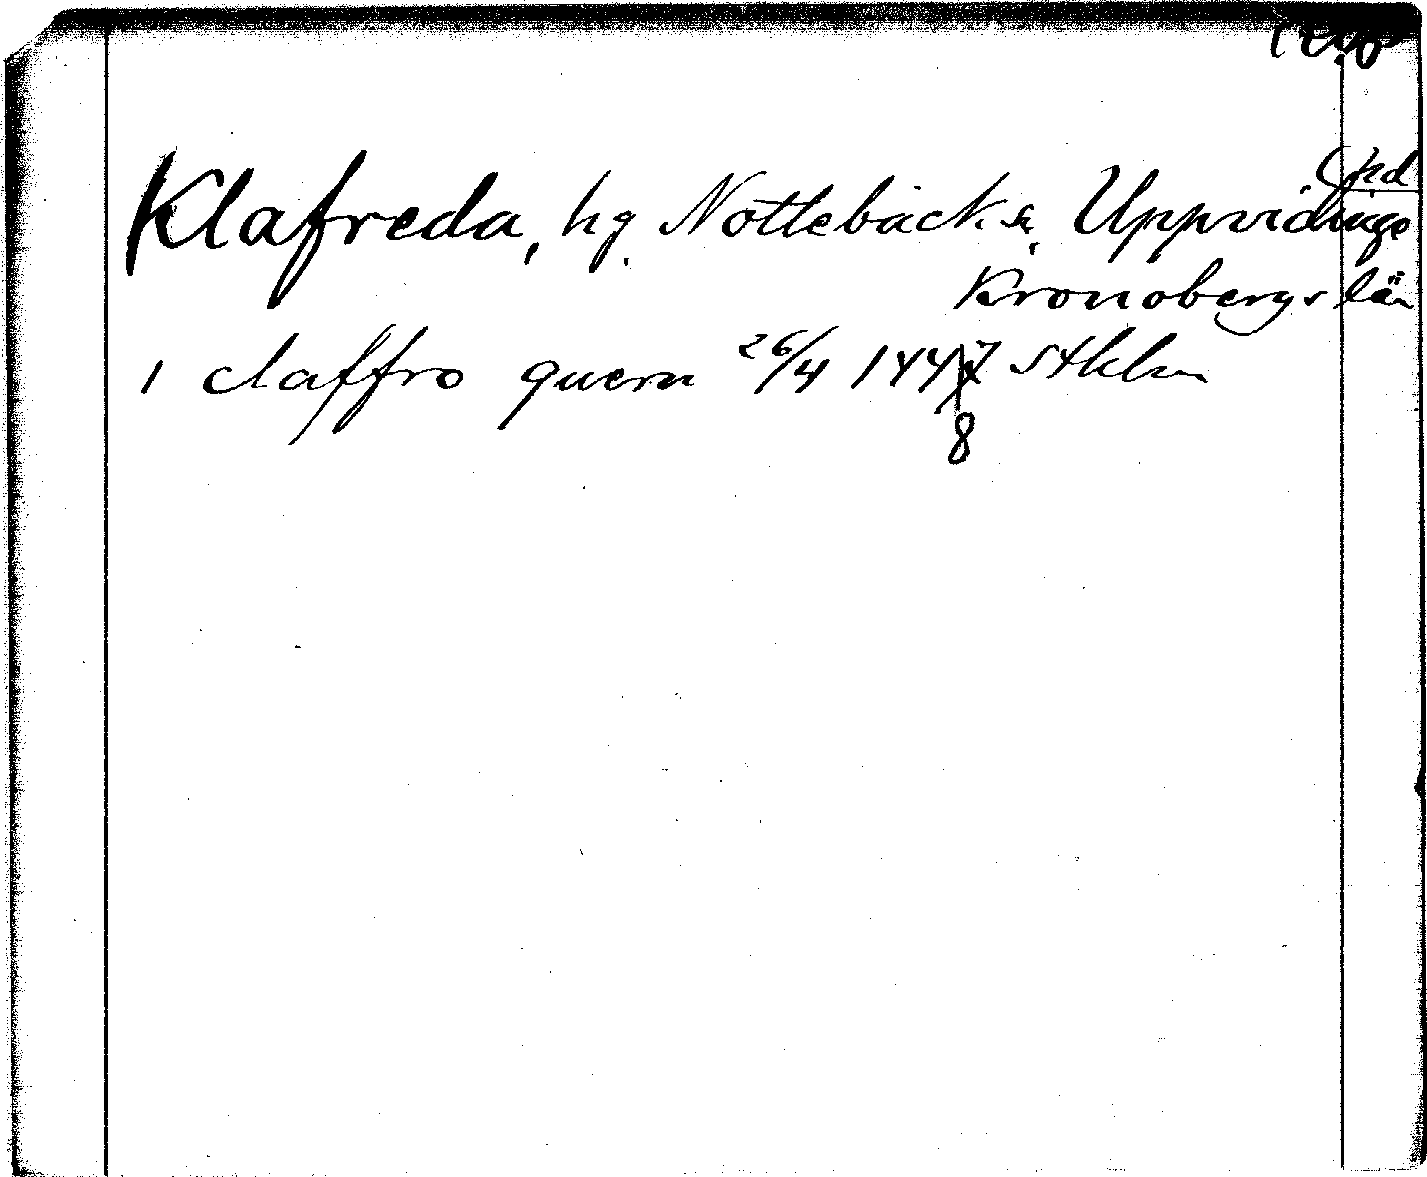 Klafreda, hg. Nottebäcks sn, Uppvidinge
Kronobergs län
1 claffro quern 26/4 1447 Sthlm
8